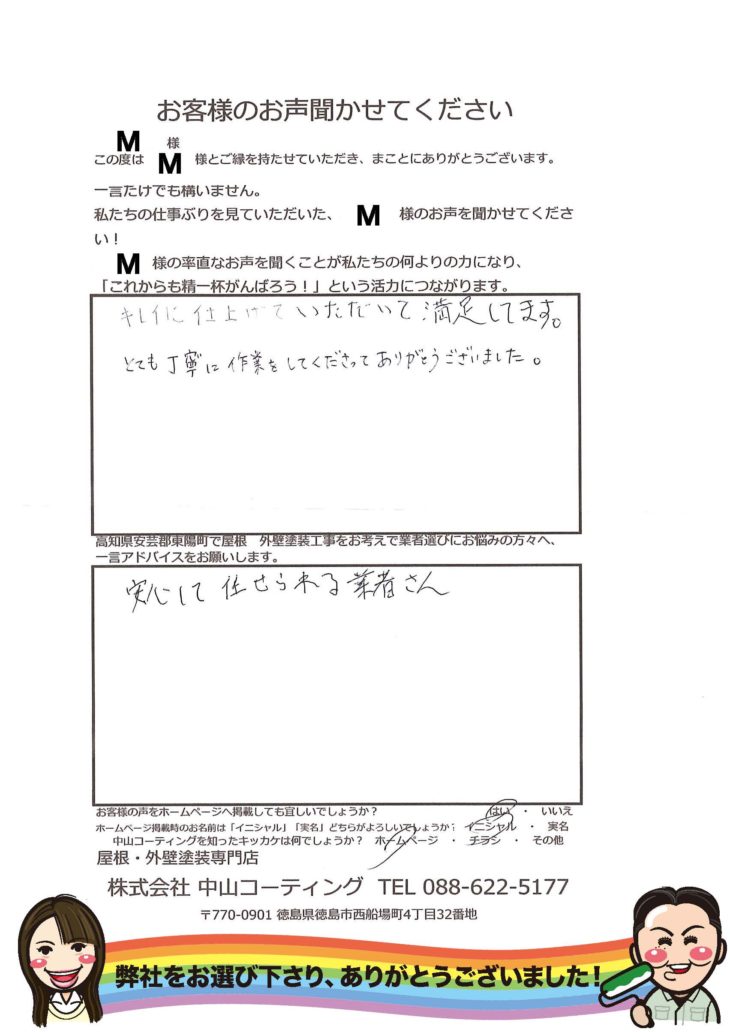 お客様のお声聞かせてください
M 様
この度は M 様とご縁を持たせていただき、まことにありがとうございます。
一言たけでも構いません。
私たちの仕事ぶりを見ていただいた、 M 様のお声を聞かせてくださ
い！
M 様の率直なお声を聞くことが私たちの何よりの力になり、
「これからも精一杯がんばろう！」という活力につながります。
キレイに仕上げていただいて満足してます。
とても丁寧に作業をしてくださってありがとうございました。
高知県安芸郡東陽町で屋根 外壁塗装工事をお考えで業者選びにお悩みの方々へ、
一言アドバイスをお願いします。
安心して任せられる業者さん
お客様の声をホームページへ掲載しても宜しいでしょうか？ はい ・ いいえ
ホームページ掲載時のお名前は「イニシャル」「実名」どちらがよろしいでしょうか？ イニシャル ・ 実名
中山コーティングを知ったキッカケは何でしょうか？ ホームページ ・ チラシ ・ その他
屋根・外壁塗装専門店
株式会社 中山コーティング TEL 088-622-5177
〒770-0901 徳島県徳島市西船場町4丁目32番地
弊社をお選び下さり、ありがとうございました！